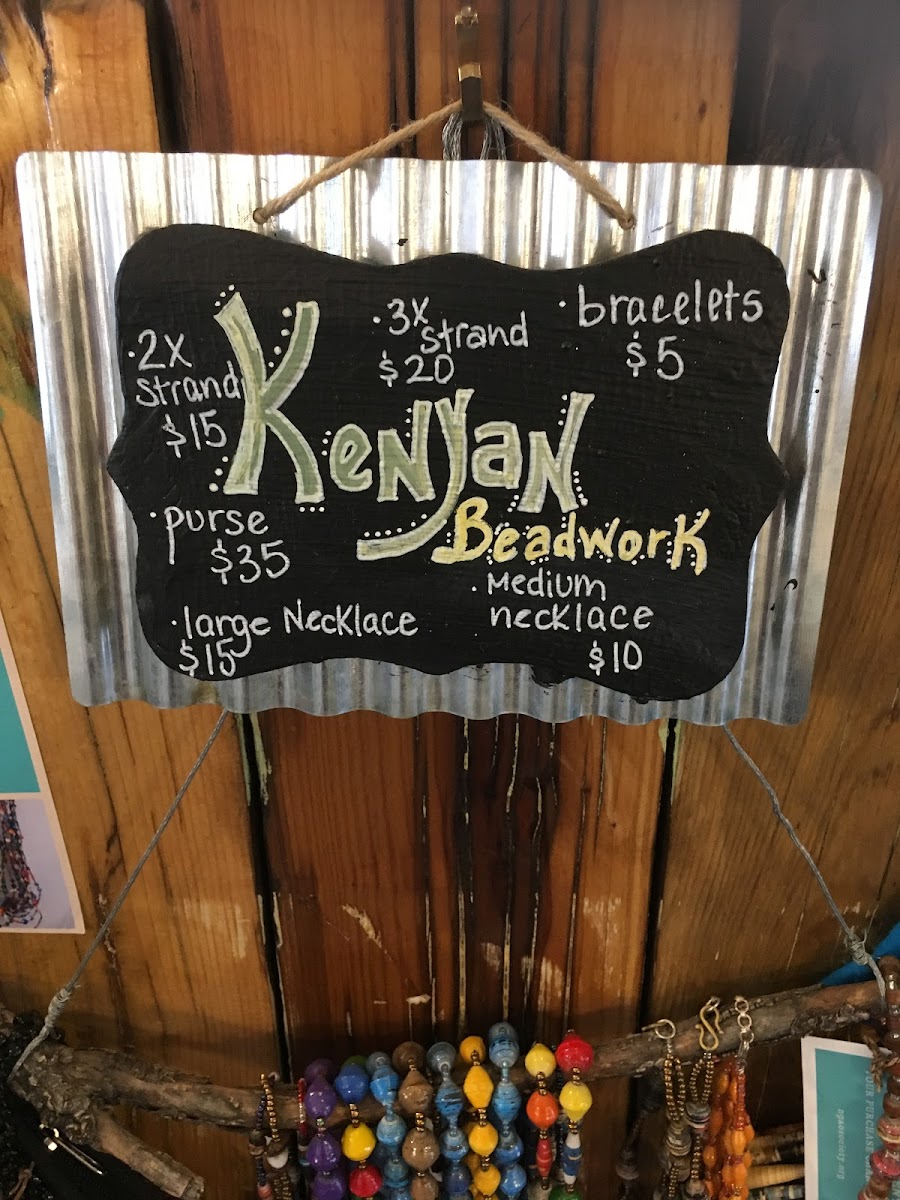 · 2X
strand
$15
· 3X
strand
$20
· bracelets
$5
Kenyan
Beadwork
· purse
$35
· Medium
necklace
$10
· large Necklace
$15
YOUR PURCHASE